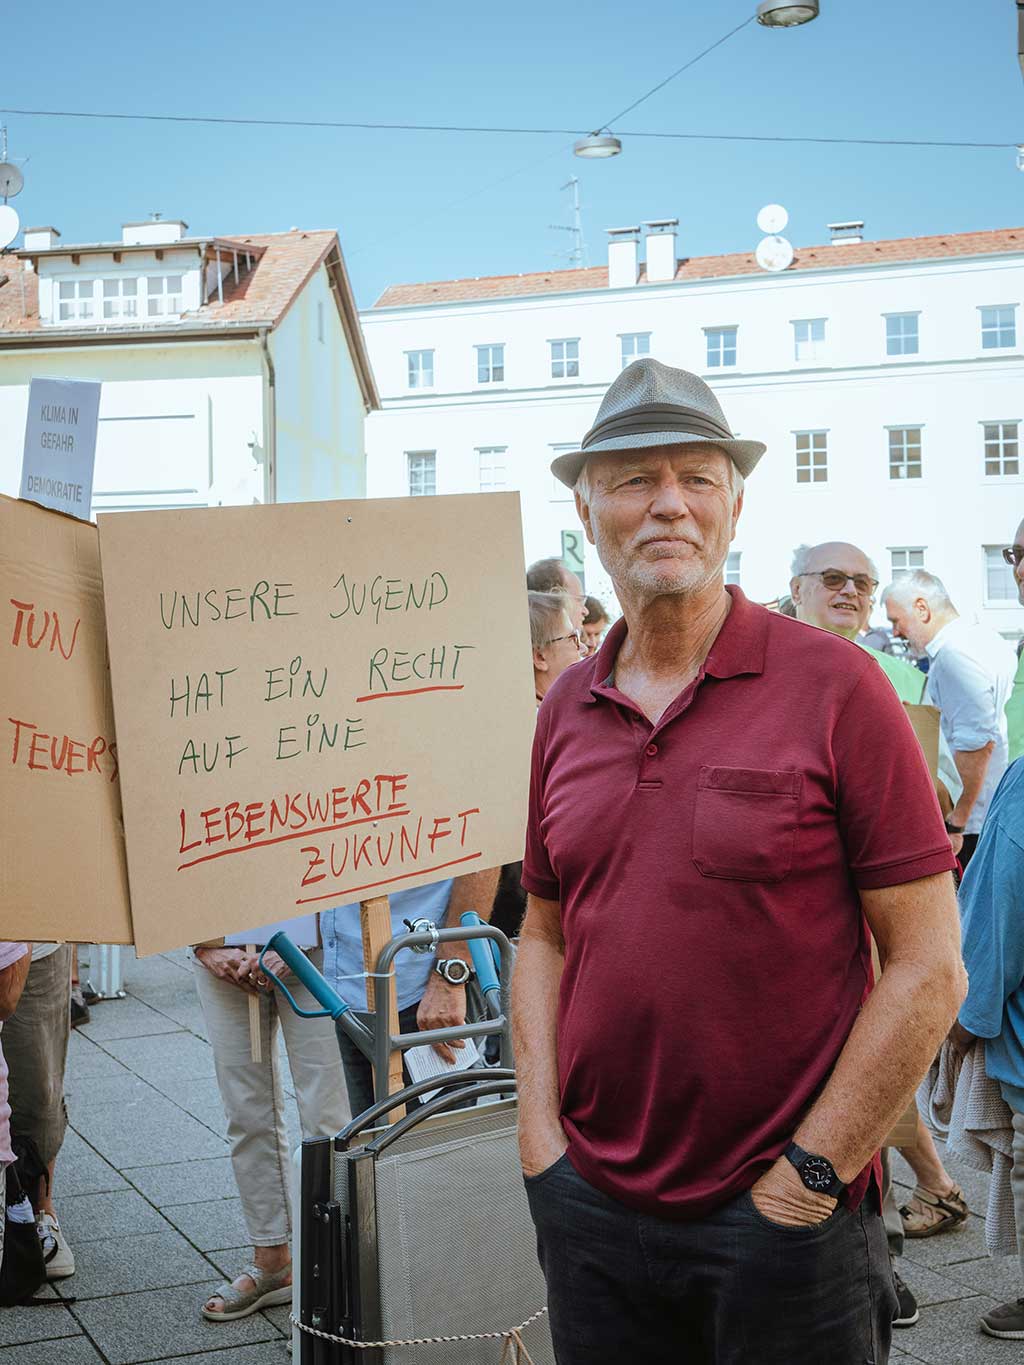 KLIMA IN
GEFAHR
DEMOKRATIE
TUN
TEUER
UNSERE JUGEND
HAT EIN RECHT
AUF EINE
LEBENSWERTE
ZUKUNFT
R